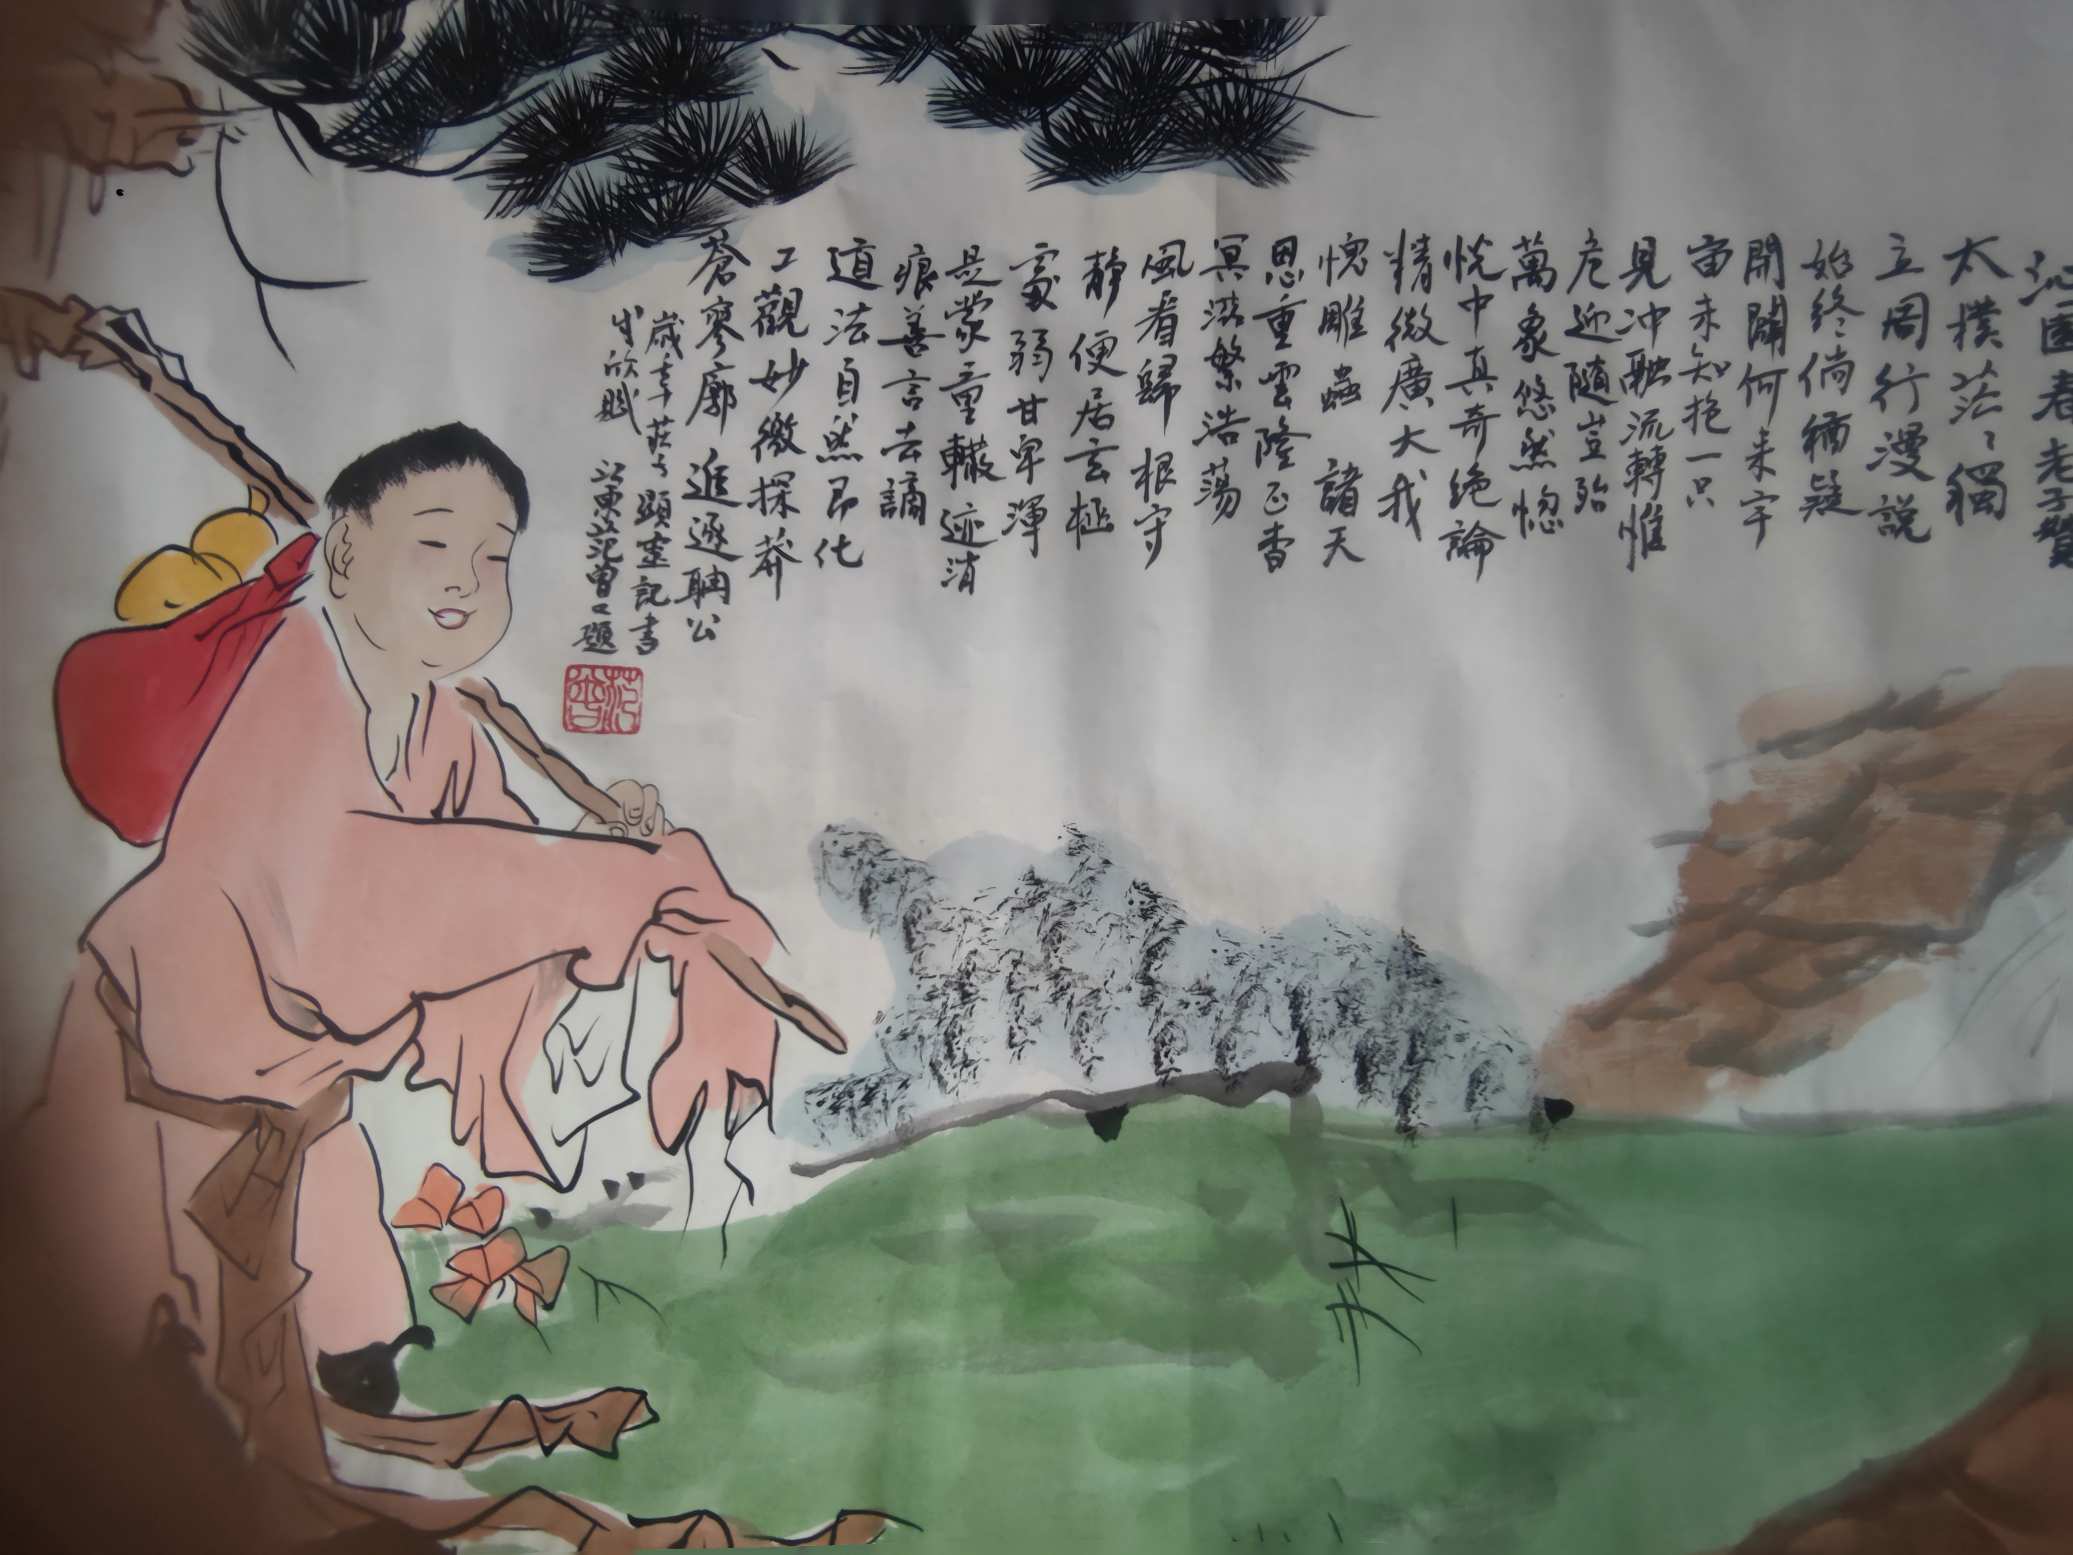 沁園春老子贊
太樸茫茫獨
立周行漫說
始終倘猶疑
開闢何来宇
宙未知抱一只
見冲融流轉惟
危迎隨豈殆
萬象悠然惚
恍中真奇绝論
精微廣大我
愧雕蟲 諸天
恩重雲隆正杳
冥滋繁浩蕩
風看歸根守
静便居玄極
寂弱甘卑渾
是蒙童轍迹消
痕善言去謫
道法自然昂化
工觀妙徼探莽
蒼寥廓追逐聃公
歲辛莊子顯靈記書
成欣賦 江東范曾又題
范曾